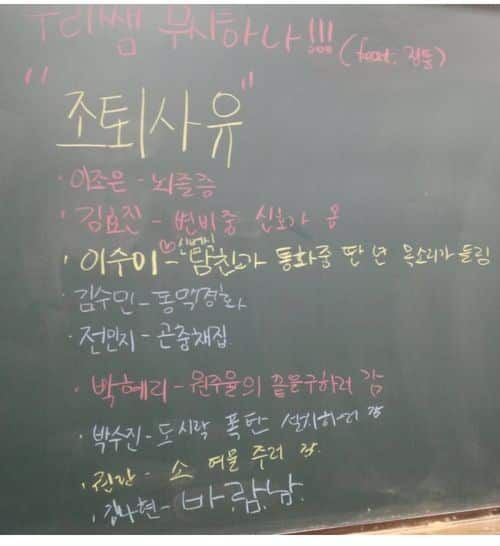 우리쌤 무시하나!!! (feat. 진돌)
"조퇴사유"
· 이조은 - 뇌졸증
· 김효진 - 변비중 신호가 옴
· 이수이 - ♡신메님 남친과 통화중 딴 년 목소리가 들림
· 김수민 - 동맥경화
· 전민지 - 곤충채집
· 박혜리 - 원주율의 끝을구하러 감
· 박수진 - 도시락 폭탄 설치하러 감
· - 소 여물 주러 감
· 김나현 - 바람남